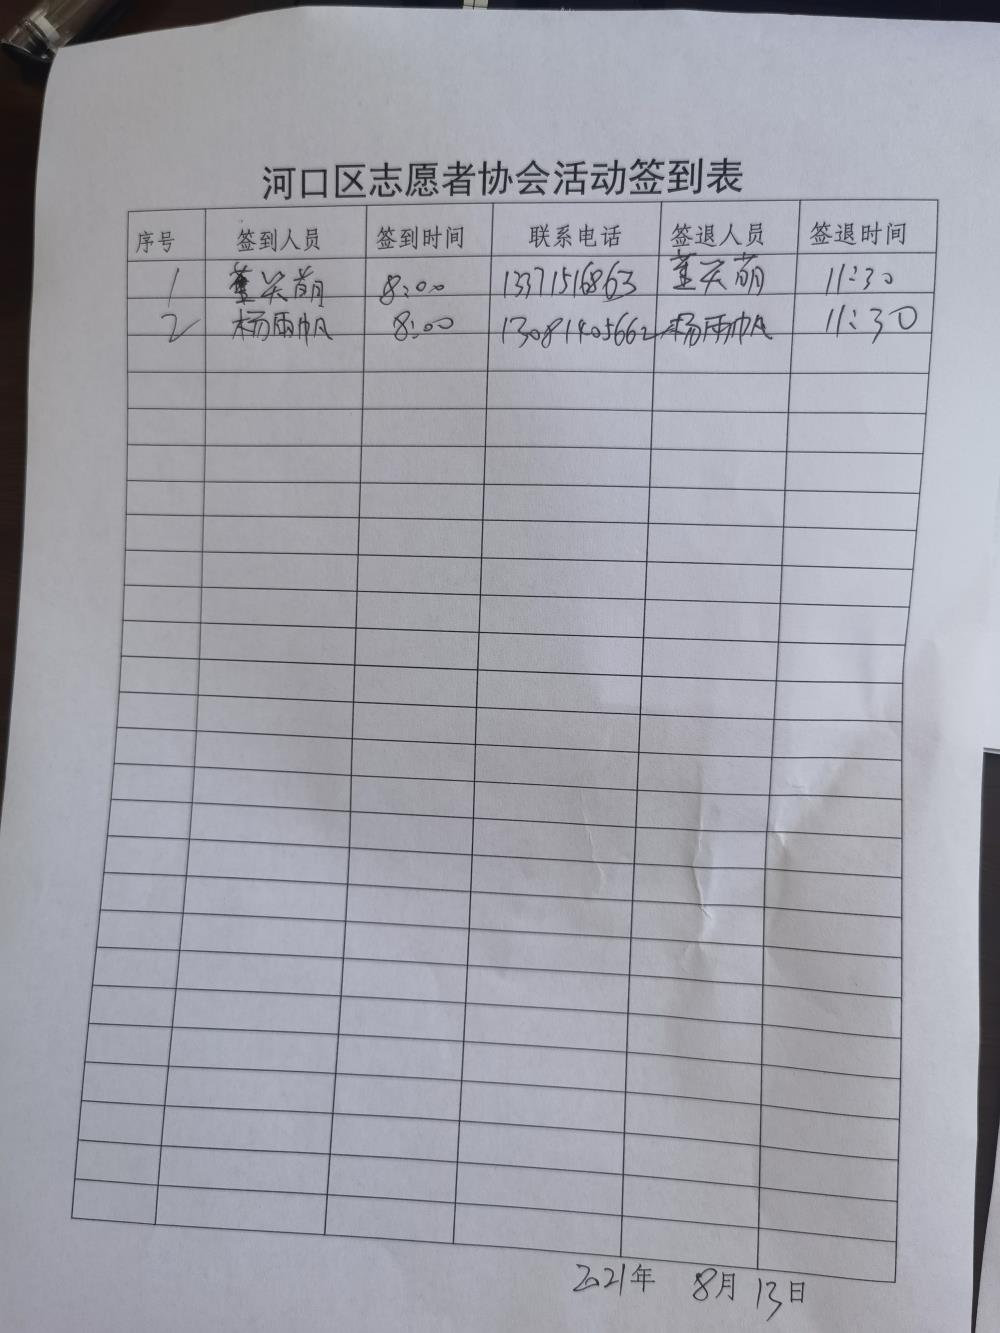 河口区志愿者协会活动签到表
序号 签到人员 签到时间 联系电话 签退人员 签退时间
1 董关萌 8:00 13371516863 董关萌 11:30
2 杨雨帆 8:00 13081405662 杨雨帆 11:30
2021年 8月13日